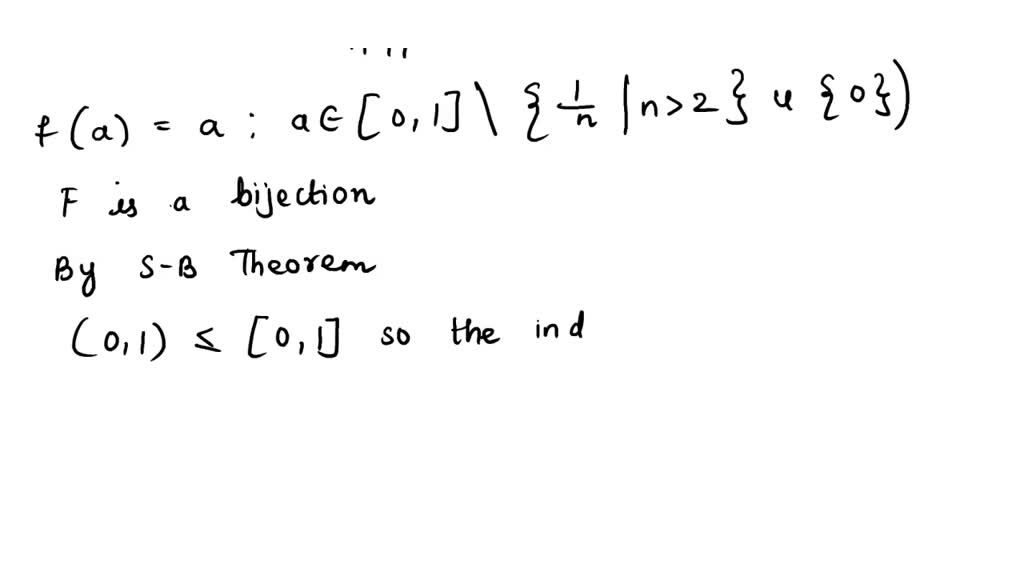 f(a) = a : a ∈ [0,1] \ { 1/n | n > 2 } u {0})
F is a bijection
By S-B Theorem
(0,1) ≤ [0,1] so the ind